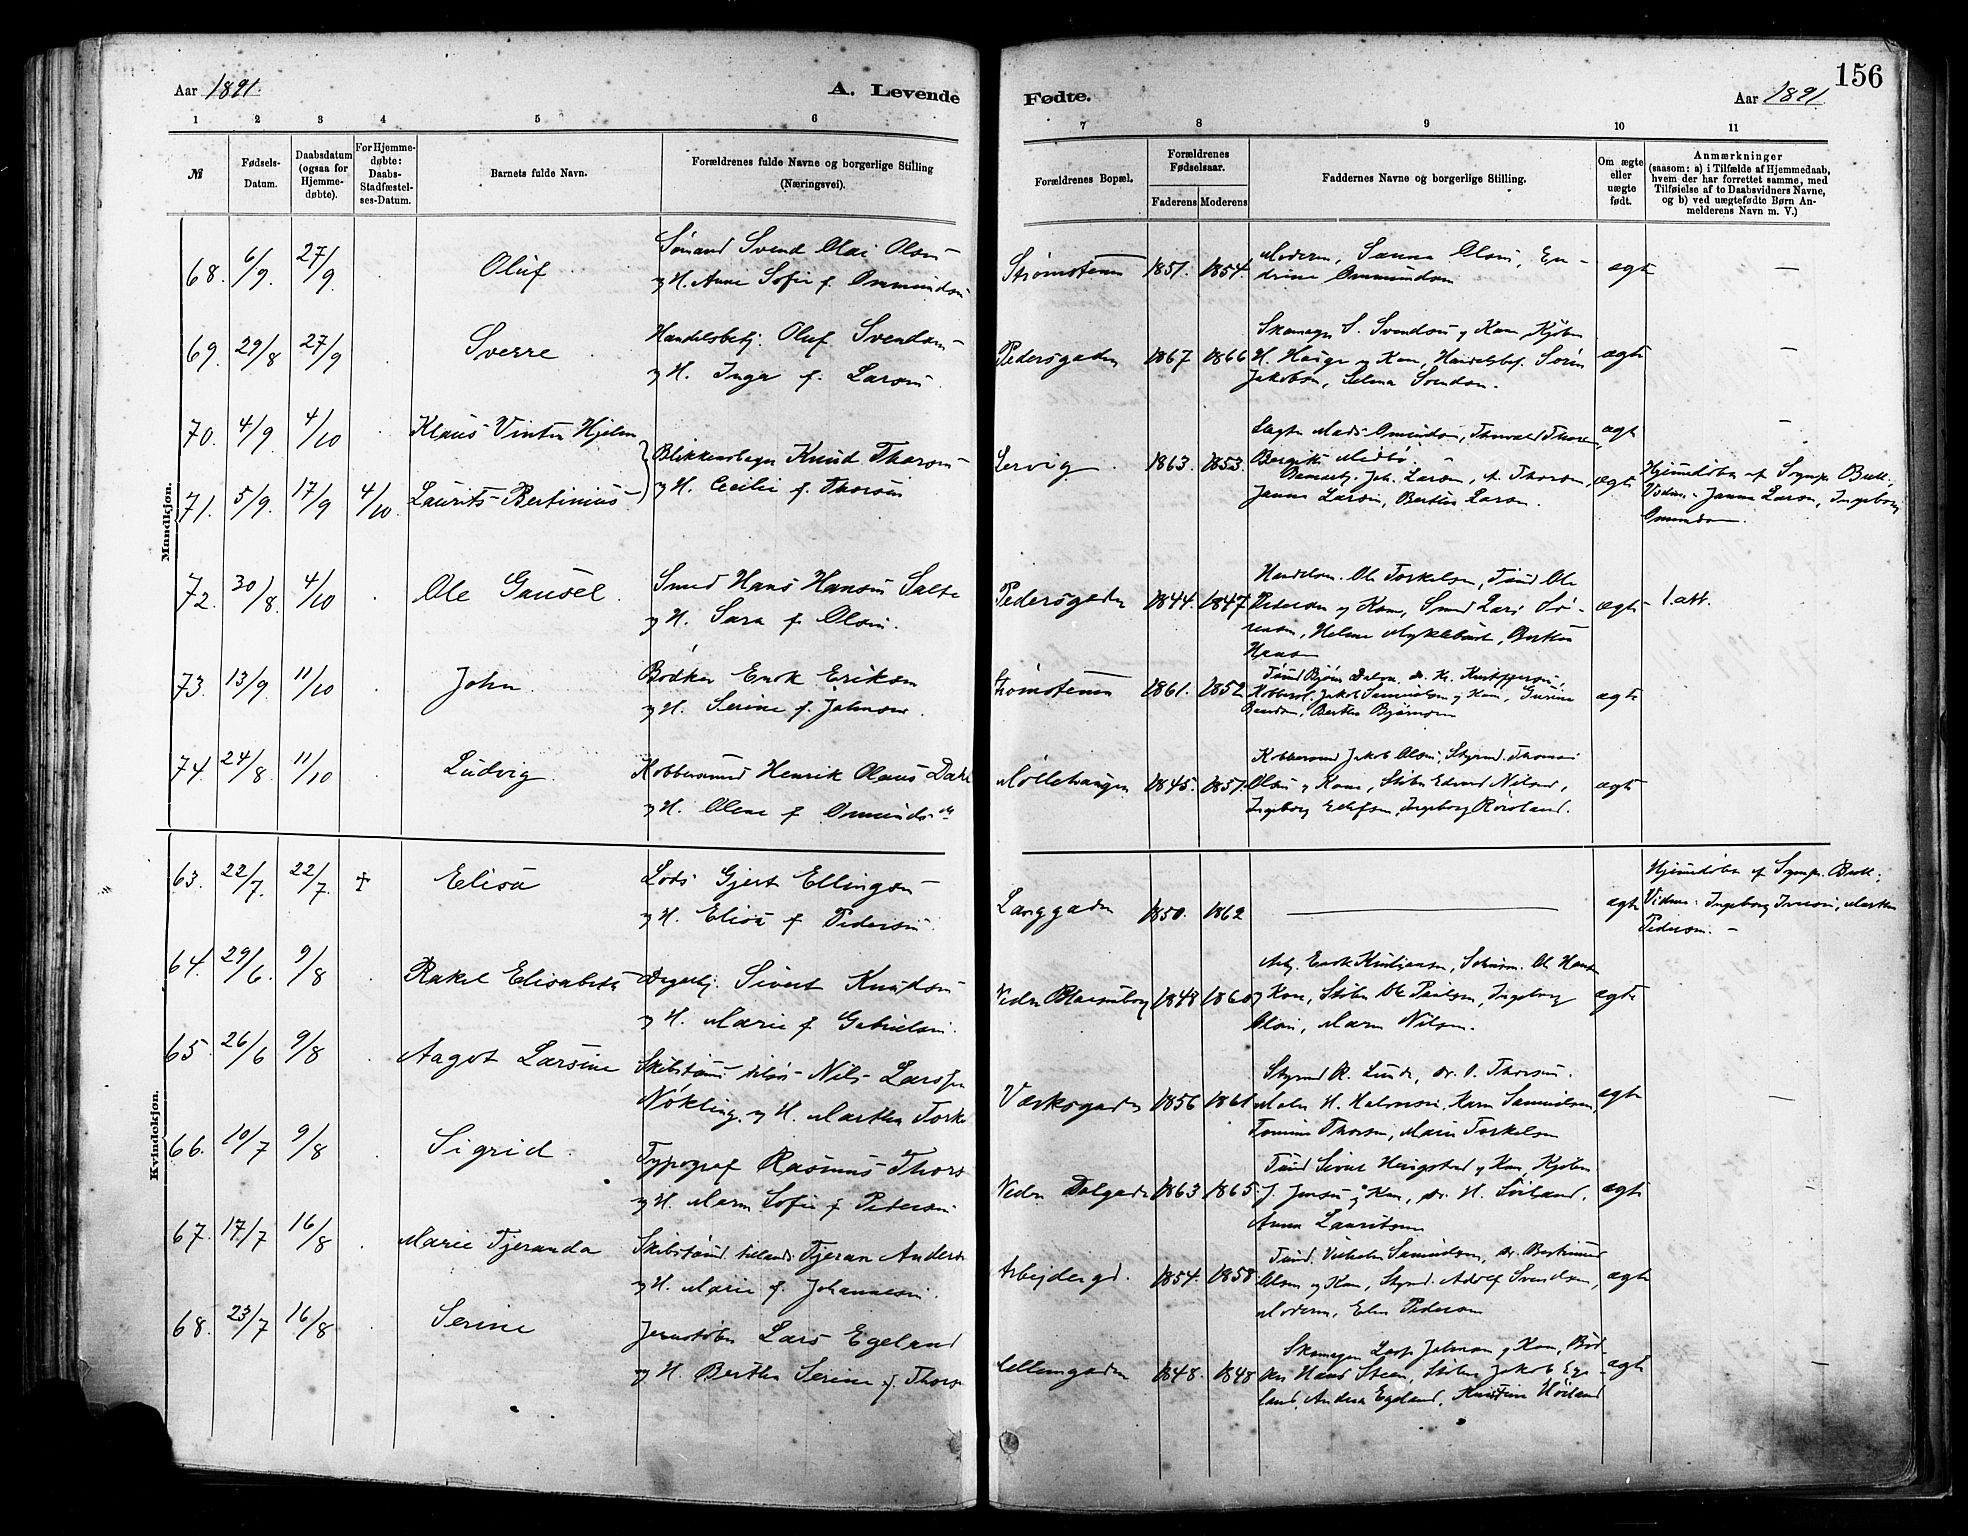 156
Aar 1891.
A. Levende
Fødte.
Aar 1891
1 2 3 4 5 6
7 8 9 10 11
№
Fødsels-Datum.
Daabsdatum (ogsaa for Hjemmedøbte).
For Hjemmedøbte: Daabs-Stadfæstelses-Datum.
Barnets fulde Navn.
Forældrenes fulde Navne og borgerlige Stilling (Næringsvei).
Forældrenes Bopæl.
Forældrenes Fødselsaar.
Faderens Moderens
Faddernes Navne og borgerlige Stilling.
Om ægte eller uægte født.
Anmærkninger
(saasom: a) i Tilfælde af Hjemmedaab, hvem der har forrettet samme, med Tilføielse af to Daabsvidners Navne, og b) ved uægtefødte Børn Anmelderens Navn m. V.)
Mandkjøn.
68. 6/9. 27/9. Oluf Sømand Svend Olai Olsen
og H. Anne Sofie f. Ommundsen
Strømstenen 1851. 1854. Moderen, Sanna Olsen, Endrine Ommundsen ægte —
69. 29/8 27/9 Sverre Handelsbetj. Oluf Svendsen
og H. Inga f. Larsen.
Pedersgaden 1867 1866 Skomager S. Svendsen og Kone, Kjøbm.
H. Hauge og Kone, Handelsbef. Søren
Jakobsen, Selma Svendsen. ægte —
70. 4/9 4/10 Klaus Vinter Hjelm
Blikkenslager Knud Thorsen
og H. Cecilie f. Thorsen
71. 5/9. 17/9 4/10 Laurits Bertinius
Lervig 1863. 1853. Mads Omundsen, Thorvald Thorsen ægte —
Joh. Larsen, Thorsen,
Janna Larsen, Berthe Larsen. ægte
Hjemmedøbt af Sognepr. Buch;
Vidner: Janna Larsen, Ingeborg
Omundsen.
72. 30/8. 4/10 Ole Gausel. Smed Hans Hansen Salte
og H. Sara f. Olsen.
Pedersgaden 1844. 1847 Ole Torkelsen, Tømd Ole
Petersen og Kone, Smed Lars Sørensen, Helene Myklebust, Berthe
Hansen ægte 1. att.
73. 13/9. 11/10 John. Bødker Enok Eriksen
og H. Serine f. Johnsen.
Strømstenen 1861. 1852. Tømd Bjørn Dalva, do. Kr. Kristiansen,
Kobbersl. Jakob Samuelsen og Kone, Gurine
Berthe Bjørnsen ægte
74. 24/8. 11/10 Ludvig. Kobbersmed Henrik Olaus Dahl
og H. Olene f. Omundsen
Møllehaugen 1845. 1857. Kobbersmed Jakob Olsen, Styrmd. Thomas
Olsen og Kone, Edvard Nilsen,
Ingeborg Ellefsen, Ingeborg Rosland. ægte
Kvindekjøn.
63. 22/7 22/7. † Elisa Lods Gjert Ellingsen
og H. Elisa f. Pedersen.
Langgaden 1850. 1862 — ægte
Hjemmedøbt af Sognepr. Buch;
Vidner: Ingeborg Iversen, Marthe
Pedersen. —
64. 29/6. 9/8 Rakel Elisabeth Sivert Knudsen
og H. Marie f. Gabrielsen.
Nedre Blaasenborg 1848 1860 Arb. Enok Kristiansen, Ole Hansen
og Kone, Ole Paulsen, Ingeborg
Olsen, Maren Nilsen. ægte
65. 26/6 9/8 Aagot Larsine Skibstømd Nils Larsen
Nøkling og H. Marthe Torkels
Værksgaden 1856 1861 Styrmd R. Lunde, do. O. Thorsen.
Maler H. Halvorsen, Karen Samuelsen,
Tomine Thorsen, Marie Torkelsen ægte —
66. 10/7 9/8 Sigrid. Typograf Rasmus Thors
og H. Maren Sofie f. Petersen
Nedre Dalgade 1863 1865. Tømd Sivert Hengstad og Kone, Kjøbm.
J. Jensen og Kone, do. H. Sørland,
Anna Lauritsen ægte —
67. 17/7 16/8 Marie Tjeranda Skibstømd Tjeran Anders
og H. Marie f. Johannesen.
Arbejdergd. 1854. 1858. Tømd. Vilhelm Samuelsen, do. Bertinius
Olsen og Kone, Styrmd. Adolf Svendsen,
Moderen, Elen Pedersen ægte
68. 23/7 16/8 Serine Jernstøber Lars Egeland
og H. Berthe Serine f. Thors
1848. 1848 Skomager Johnsen og Kone, Bødker Hans Steen, Støber Jakob Egeland, Andrea Egeland, Høiland ægte —